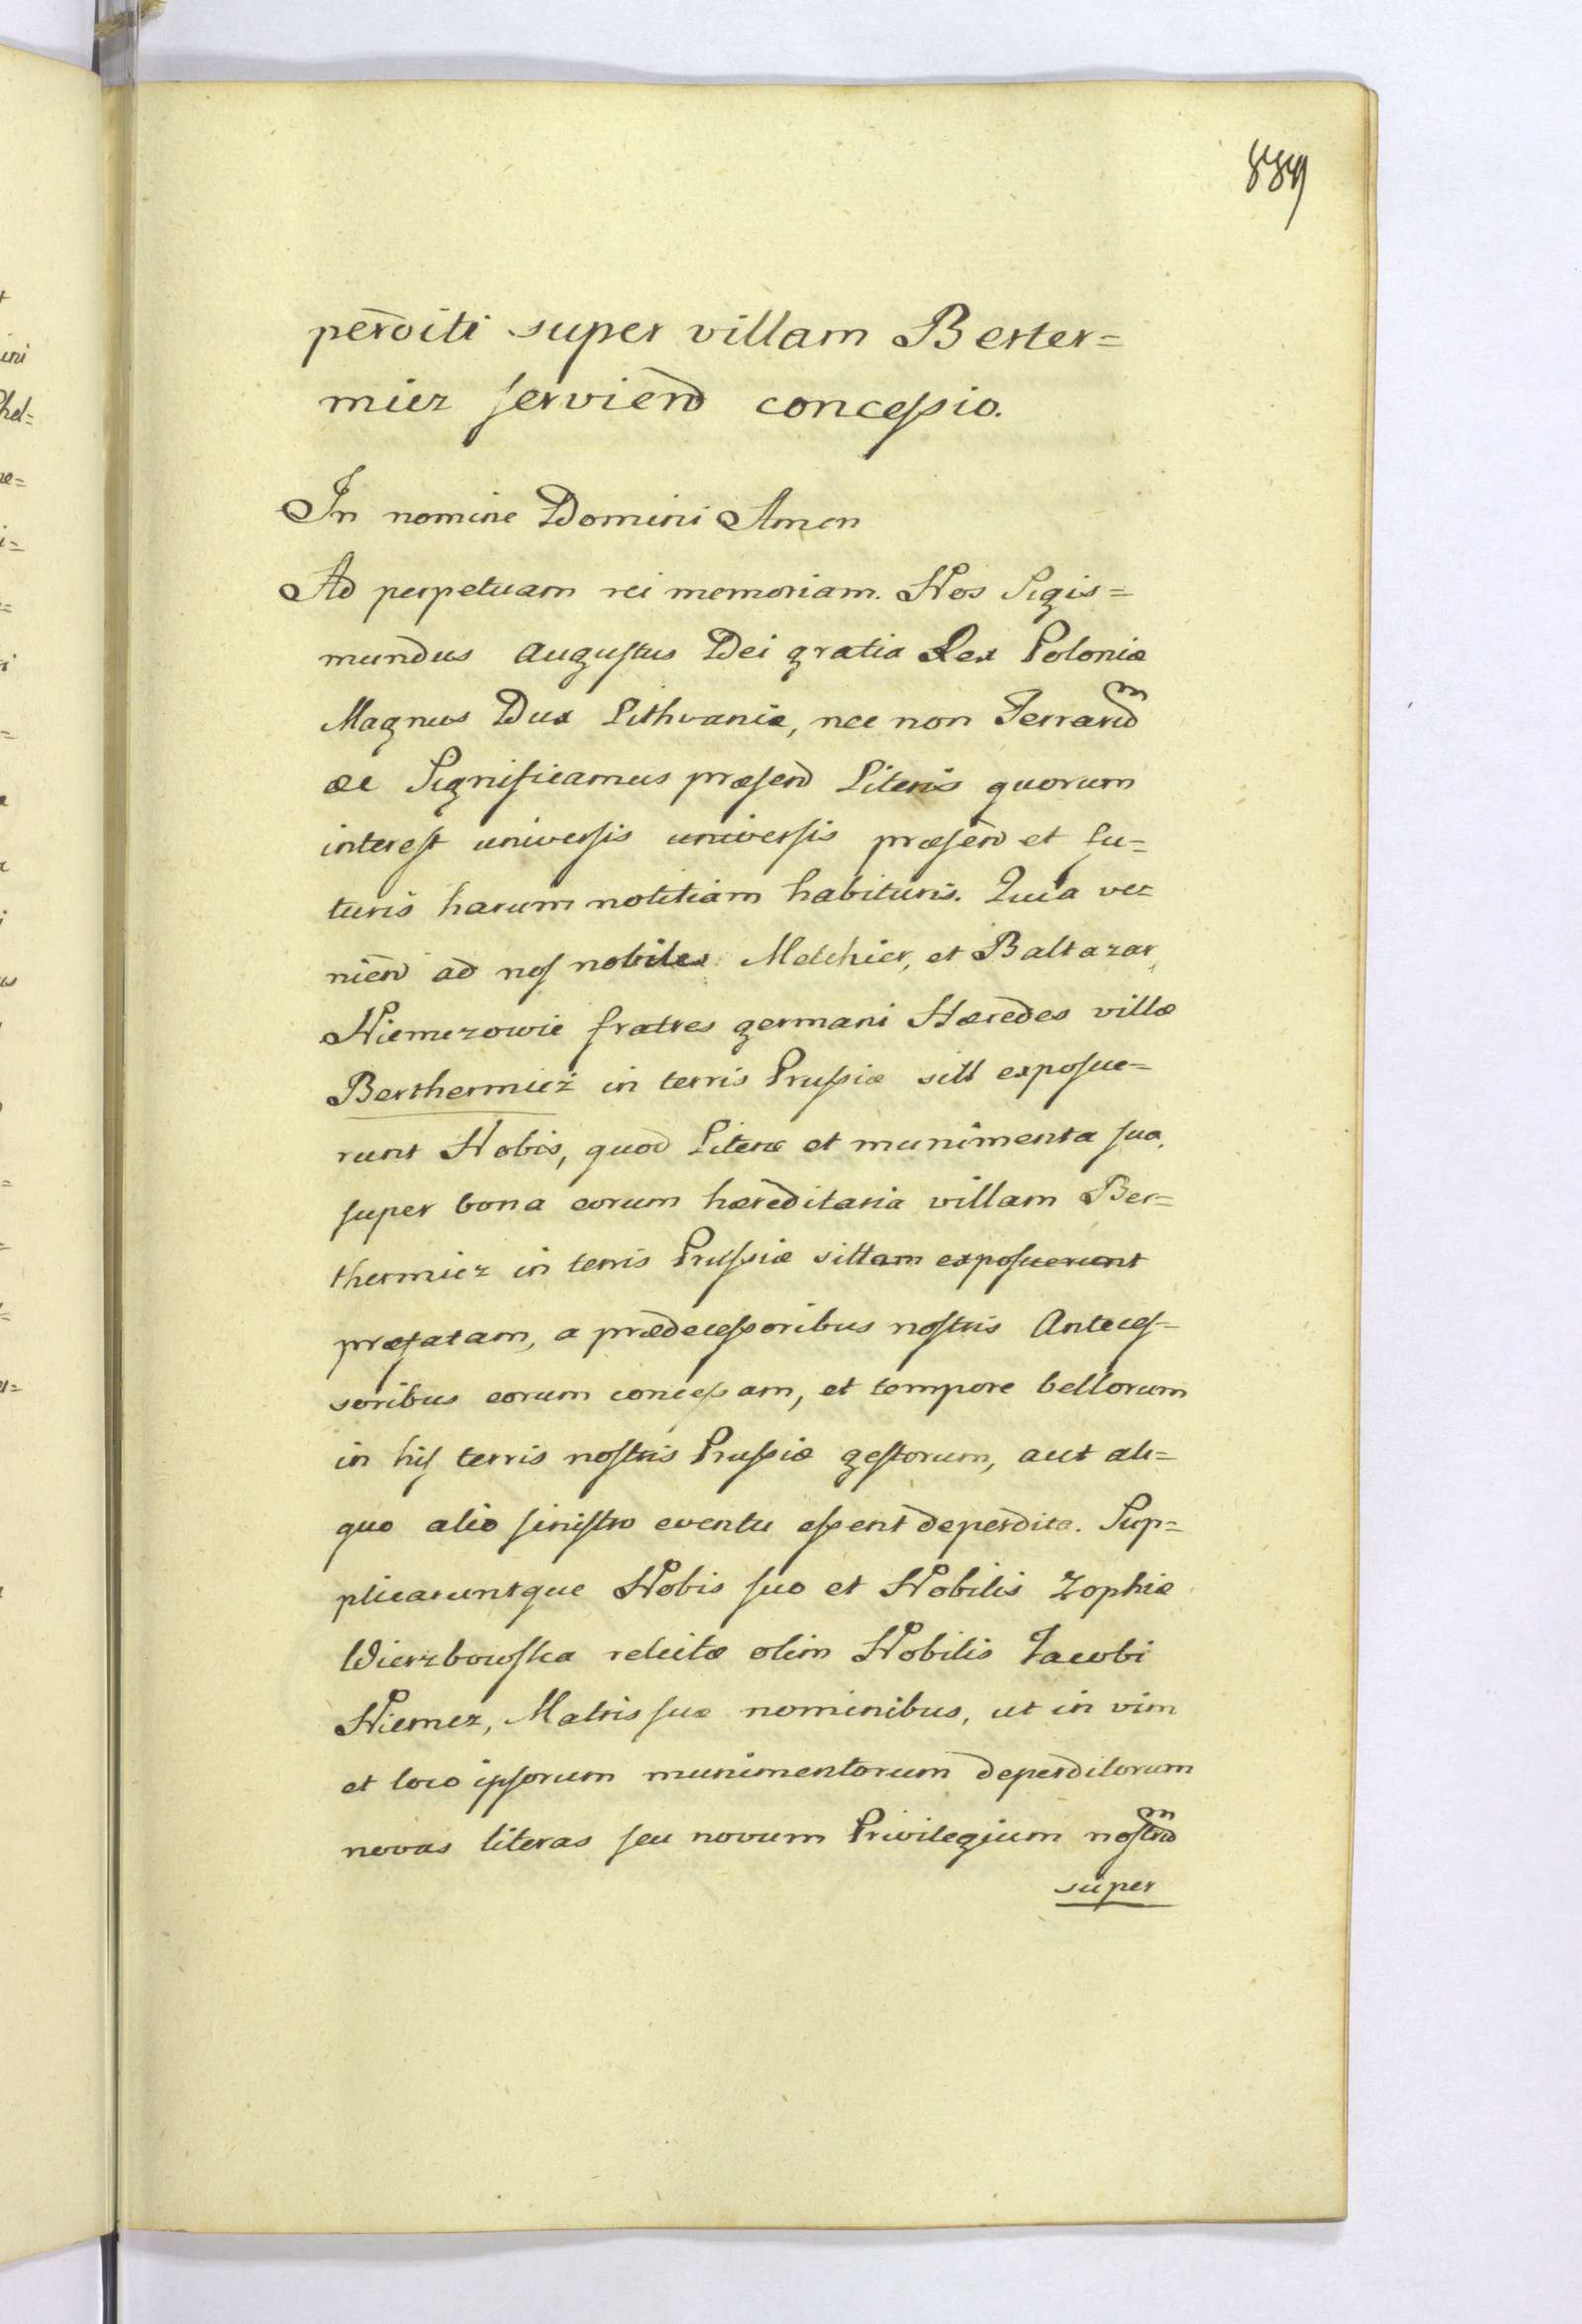 889
perditi super villam Berter=
miez serviend concessio.
In nomine Domini Amen
Ad perpetuam rei memoriam. Nos Sigis=
mundus Augustus Dei gratia Rex Poloniæ
Magnus Dux Lithvaniæ, nec non Terrarum
æc Significamus præsend Literis quorum
interest universis universis præsend et fu=
turis harum notitiam habituris. Quia ve=
niend ad nos nobiles Melchier, et Baltazar
Niemczowie fratres germani Hæredes villæ
Berthermież in terris Prussiæ sitt exposue=
runt Nobis, quod Literæ et munimenta sua,
super bona eorum hæreditaria villam Ber=
thermiez in terris Prussiæ sittam exposuerunt
præfatam, a prædecessoribus nostris Anteces=
soribus eorum concessam, et tempore bellorum
in his terris nostris Prussiæ gestorum, aut ali=
quo alio sinistro eventu essent deperdita. Sup=
plicaruntque Nobis suo et Nobilis Zophiæ
Wierzbowska relictæ olim Nobilis Jacobi
Niemcz, Matris suæ nominibus, ut in vim
et loco ipsorum munimentorum deperditorum
novas literas seu novum Privilegium nostrum
super